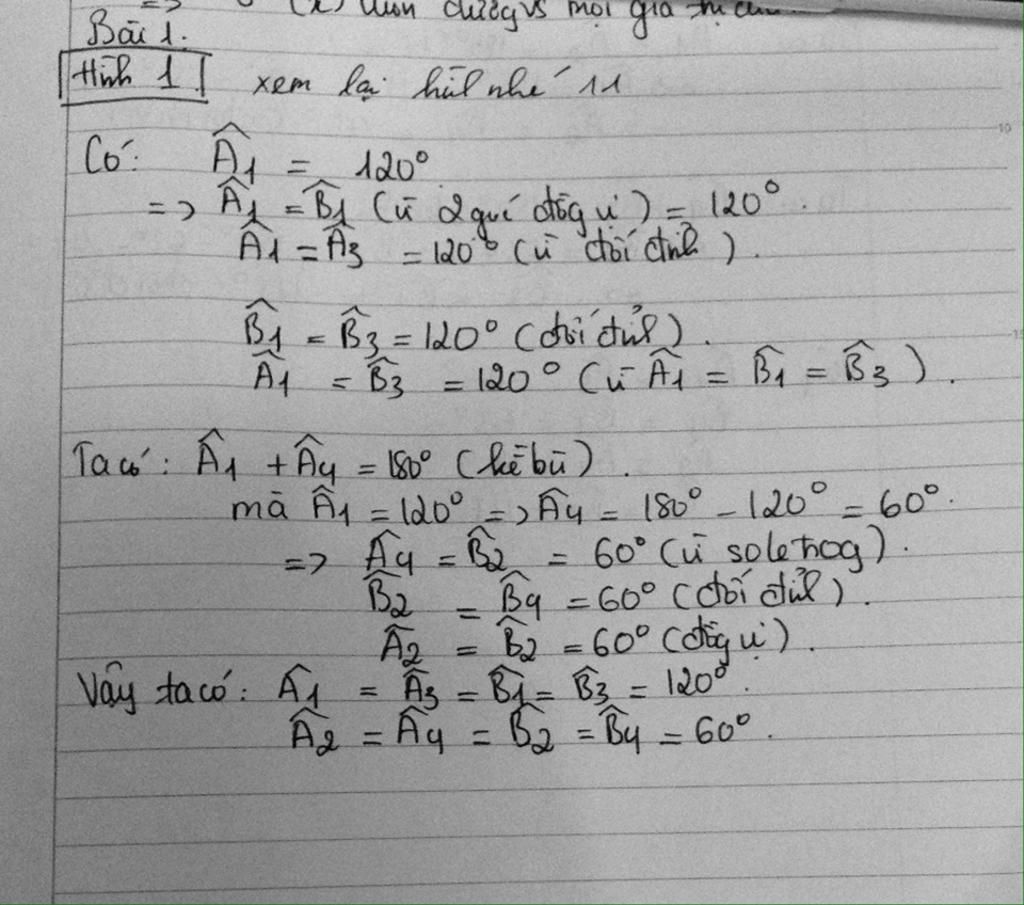 => (x) luôn dương vs mọi giá trị của
Bài 1.
Hình 1. xem lại hìh nhé 11
Có: Â1 = 120°
=> Â1 = B̂1 (vì 2 góc đồg vị) = 120°.
Â1 = Â3 = 120° (vì đối đỉh).
B̂1 = B̂3 = 120° (đối đỉh).
Â1 = B̂3 = 120° (vì Â1 = B̂1 = B̂3).
Ta có: Â1 + Â4 = 180° (kề bù).
mà Â1 = 120° => Â4 = 180° - 120° = 60°.
=> Â4 = B̂2 = 60° (vì sole trog).
B̂2 = B̂4 = 60° (đối đỉh).
Â2 = B̂2 = 60° (đồg vị).
Vậy ta có: Â1 = Â3 = B̂1 = B̂3 = 120°.
Â2 = Â4 = B̂2 = B̂4 = 60°.